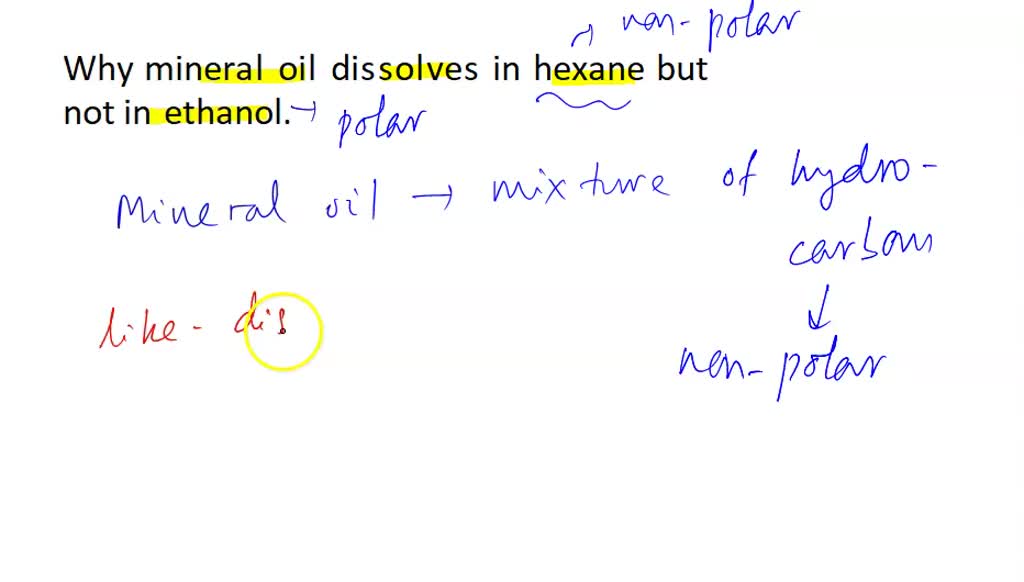 → non-polar
Why mineral oil dissolves in hexane but
not in ethanol. → polar
Mineral oil → mixture of hydro-
carbons
↓
non-polar
like - dis